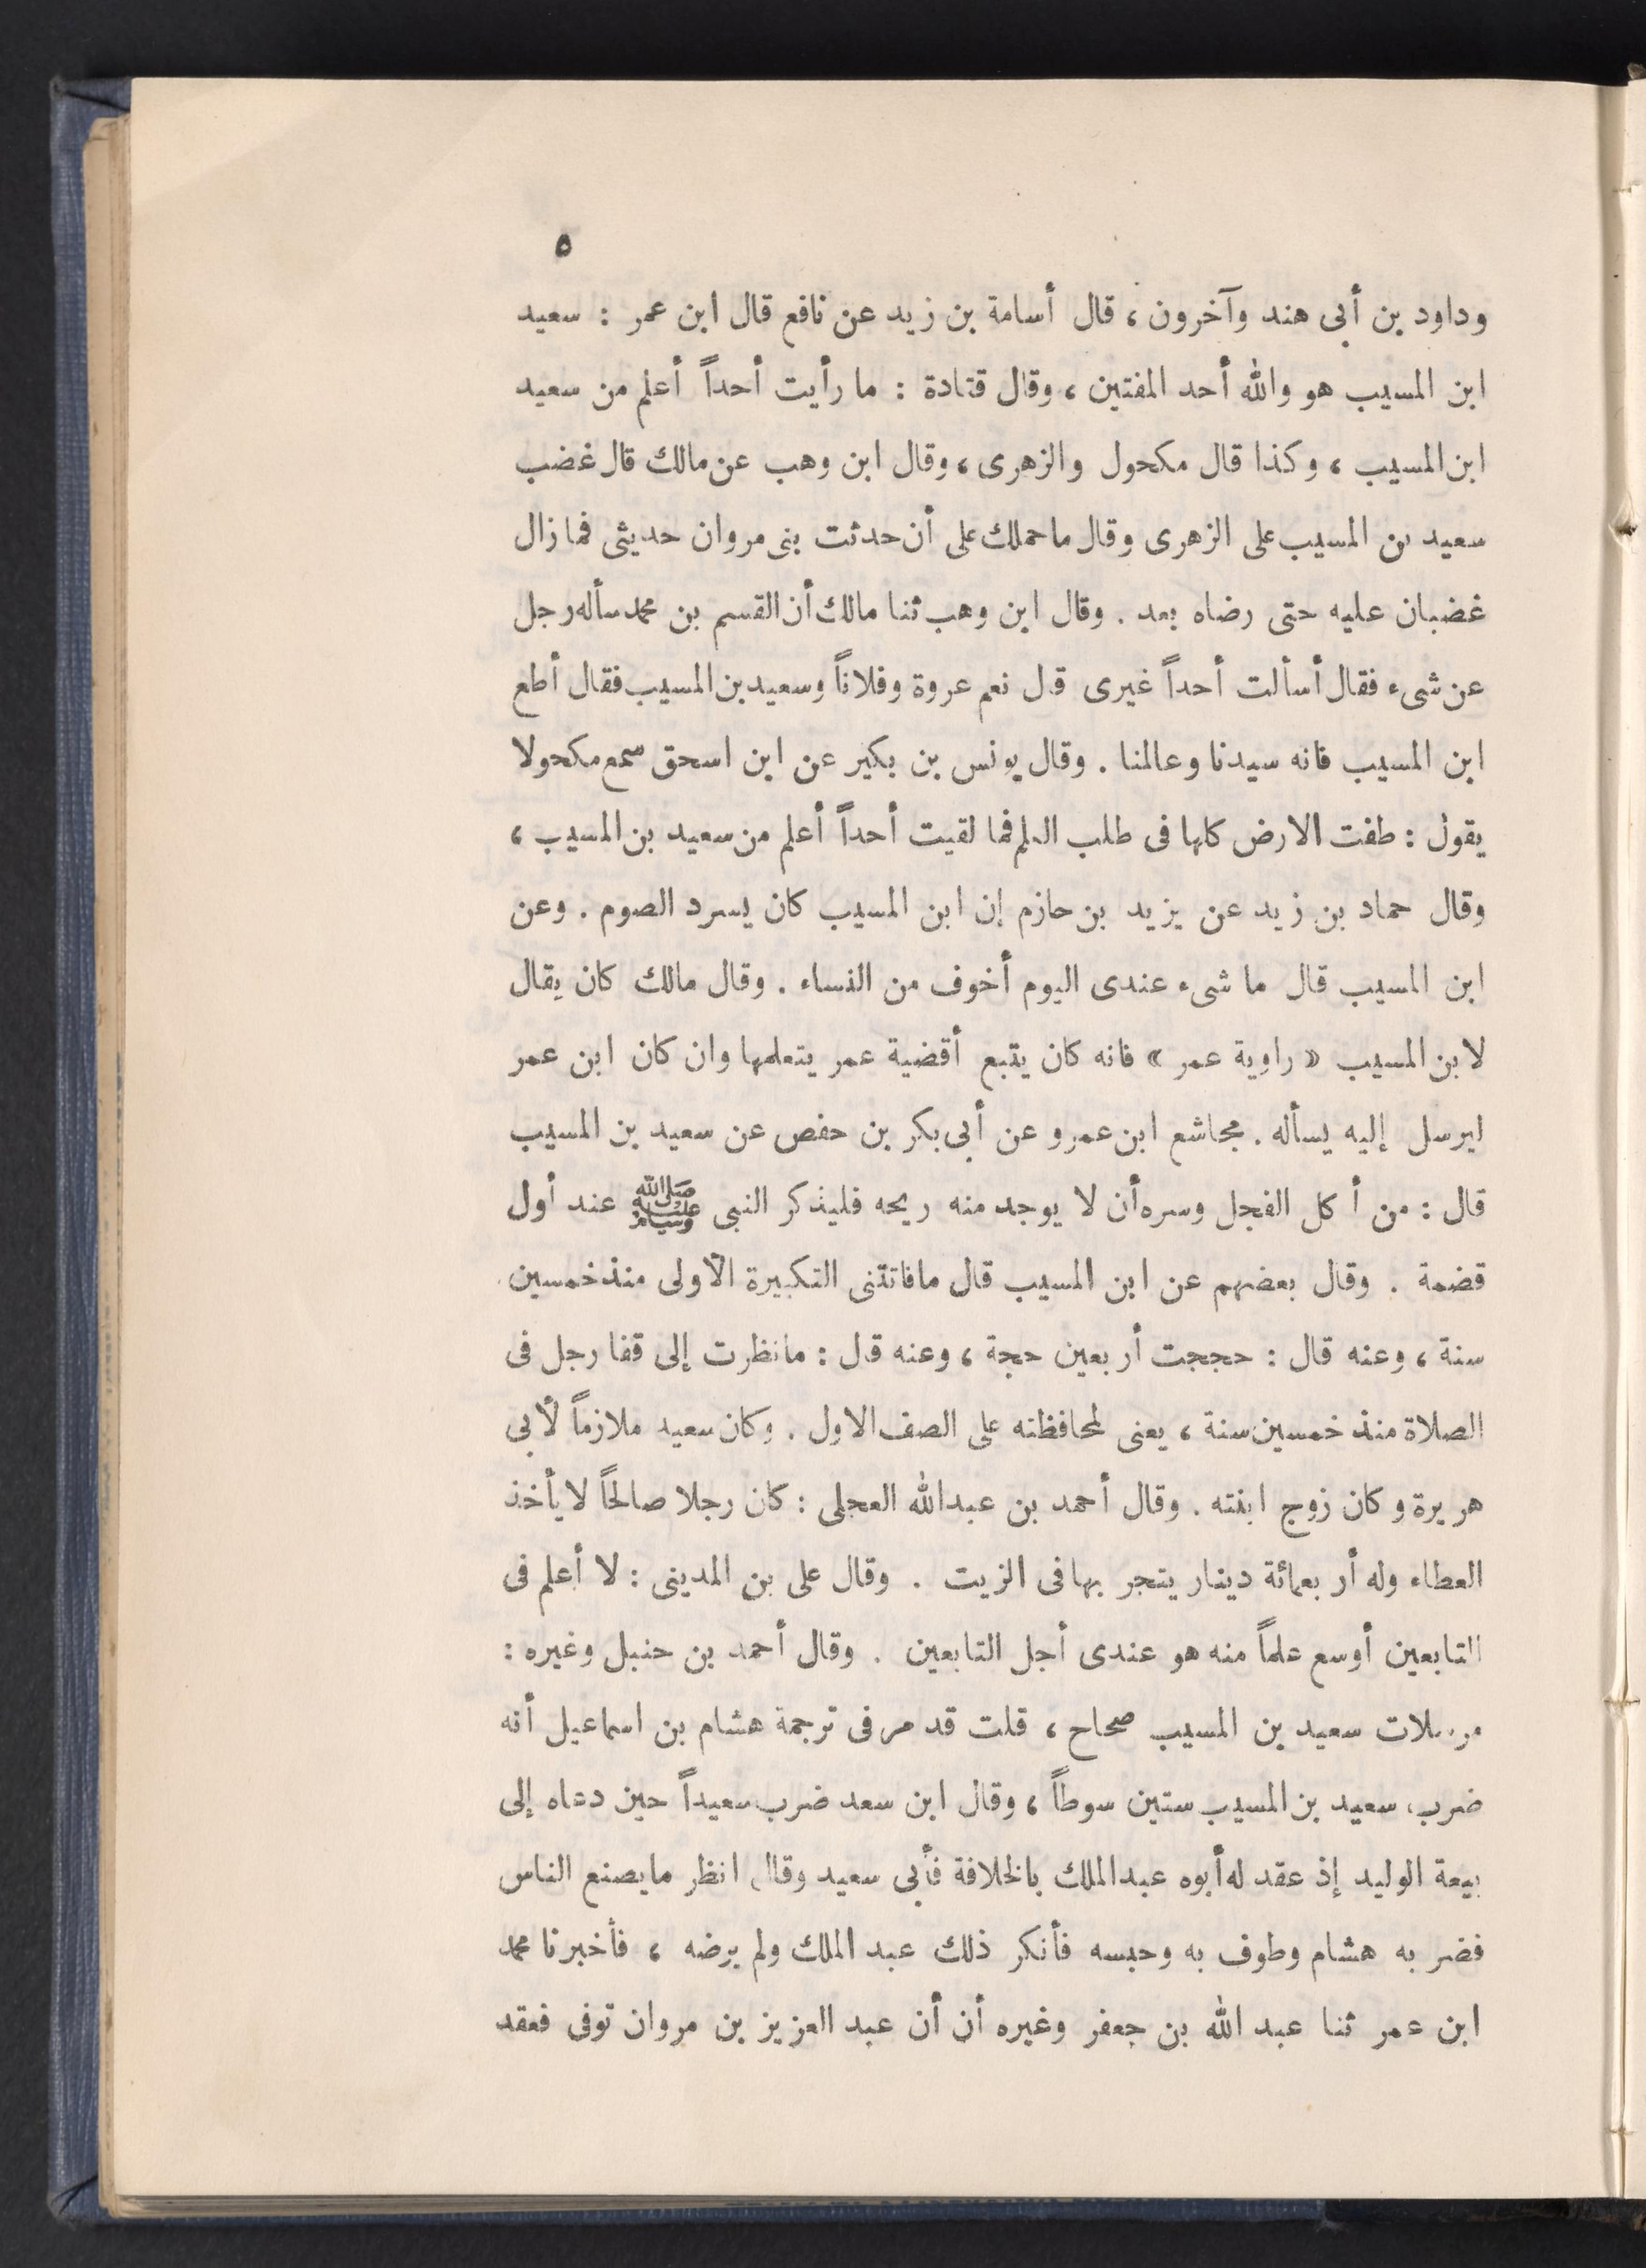 ٥
وداود بن أبى هند وآخرون ، قال أسامة بن زيد عن نافع قال ابن عمر : سعيد
ابن المسيب هو والله أحد المفتين ، وقال قتادة : ما رأيت أحداً أعلم من سعيد
ابن المسيب ، وكذا قال مكحول والزهرى ، وقال ابن وهب عن مالك قال غضب
سعيد بن المسيب على الزهرى وقال ما حملك على أن حدثت بنى مروان حديثى فما زال
غضبان عليه حتى رضاه بعد . وقال ابن وهب ثنا مالك أن القسم بن محمد سأله رجل
عن شىء فقال أسألت أحداً غيرى قال نعم عروة وفلاناً وسعيد بن المسيب فقال أطع
ابن المسيب فانه سيدنا وعالمنا . وقال يونس بن بكير عن ابن اسحق سمع مكحولا
يقول : طفت الارض كلها فى طلب العلم فما لقيت أحداً أعلم من سعيد بن المسيب ،
وقال حماد بن زيد عن يزيد بن حازم إن ابن المسيب كان يسرد الصوم . وعن
ابن المسيب قال ما شىء عندى اليوم أخوف من النساء . وقال مالك كان يقال
لابن المسيب « راوية عمر » فانه كان يتبع أقضية عمر يتعلمها وان كان ابن عمر
ليرسل إليه يسأله . مجاشع ابن عمرو عن أبى بكر بن حفص عن سعيد بن المسيب
قال : من أكل الفجل وسره أن لا يوجد منه ريحه فليذكر النبى ﷺ عند أول
قضمة . وقال بعضهم عن ابن المسيب قال مافاتتنى التكبيرة الأولى منذ خمسين
سنة ، وعنه قال : حججت أربعين حجة ، وعنه قال : مانظرت إلى قفا رجل فى
الصلاة منذ خمسين سنة ، يعنى لمحافظته على الصف الاول . وكان سعيد ملازماً لأبى
هريرة وكان زوج ابنته . وقال أحمد بن عبدالله العجلى : كان رجلا صالحاً لا يأخذ
العطاء وله أربعمائة دينار يتجر بها فى الزيت . وقال على بن المدينى : لا أعلم فى
التابعين أوسع علماً منه هو عندى أجل التابعين . وقال أحمد بن حنبل وغيره :
مرسلات سعيد بن المسيب صحاح ، قلت قد مر فى ترجمة هشام بن اسماعيل أنه
ضرب سعيد بن المسيب ستين سوطاً ، وقال ابن سعد ضرب سعيداً حين دعاه إلى
بيعة الوليد إذ عقد له أبوه عبدالملك بالخلافة فأبى سعيد وقال انظر مايصنع الناس
فضربه هشام وطوف به وحبسه فأنكر ذلك عبد الملك ولم يرضه ، فأخبرنا محمد
ابن عمر ثنا عبد الله بن جعفر وغيره أن أن عبد العزيز بن مروان توفى فعقد